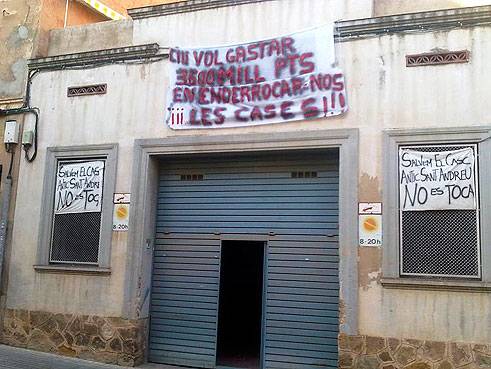 CIU VOL GASTAR
3800 MILL PTS
EN ENDERROCAR-NOS
¡¡¡ LES CASES!!!
SALVEM EL CASC
ANTIC SANT ANDREU
NO ES TOCA
8-20h
SALVEM EL CASC
ANTIC SANT ANDREU
NO ES TOCA
8-20h